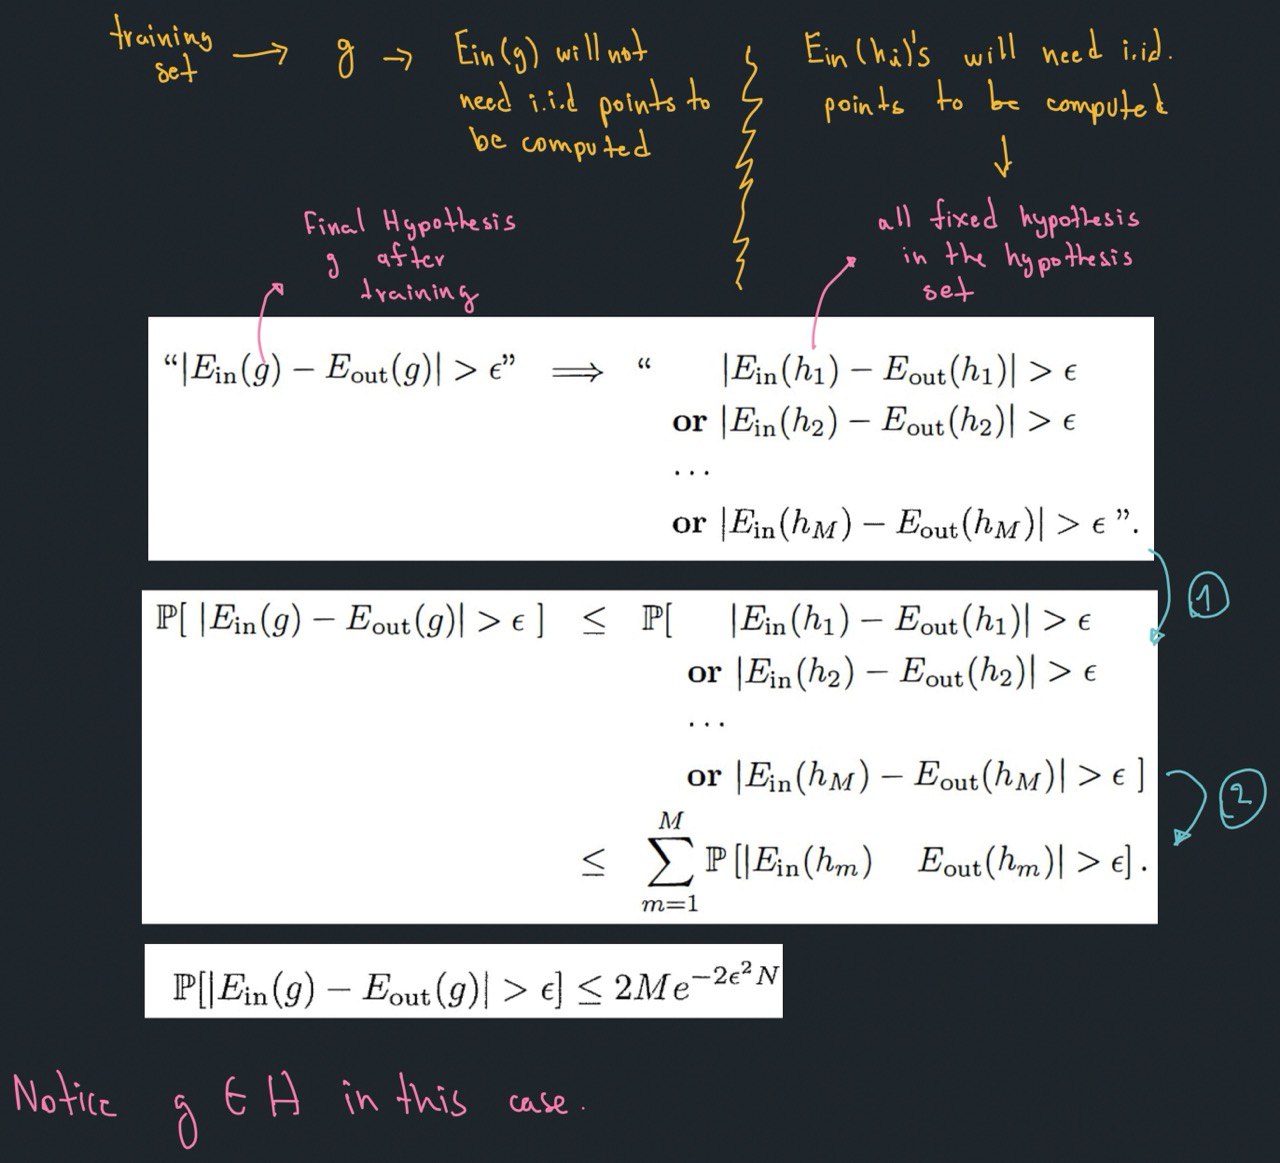 training set → g → Ein(g) will not
need i.i.d points to
be computed
Ein(hi)'s will need i.i.d.
points to be computed
↓
Final Hypothesis
g after
training
all fixed hypothesis
in the hypothesis
set
“|E_in(g) − E_out(g)| > ϵ” ⟹ “ |E_in(h_1) − E_out(h_1)| > ϵ
or |E_in(h_2) − E_out(h_2)| > ϵ
· · ·
or |E_in(h_M) − E_out(h_M)| > ϵ ”.
①
ℙ[ |E_in(g) − E_out(g)| > ϵ ] ≤ ℙ[ |E_in(h_1) − E_out(h_1)| > ϵ
or |E_in(h_2) − E_out(h_2)| > ϵ
· · ·
or |E_in(h_M) − E_out(h_M)| > ϵ ]
②
≤ ∑_{m=1}^{M} ℙ [|E_in(h_m) E_out(h_m)| > ϵ] .
ℙ[|E_in(g) − E_out(g)| > ϵ] ≤ 2Me^{−2ϵ²N}
Notice g ∈ H in this case.